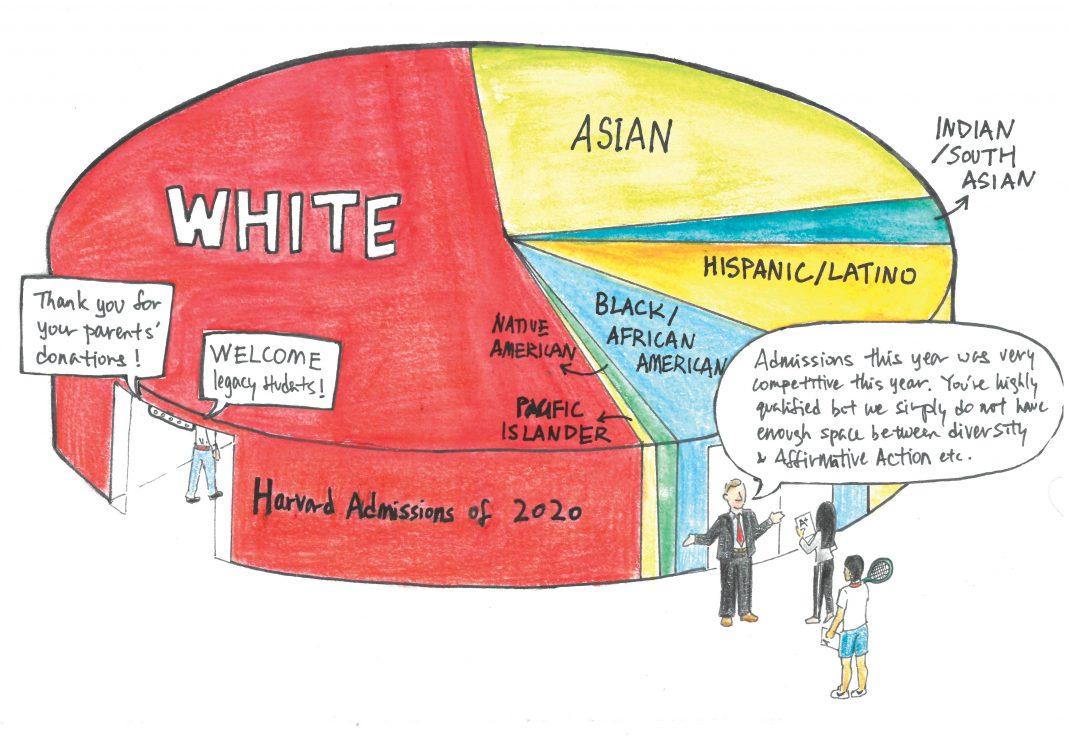 WHITE
ASIAN
INDIAN
/SOUTH
ASIAN
HISPANIC/LATINO
BLACK/
AFRICAN
AMERICAN
NATIVE
AMERICAN
PACIFIC
ISLANDER
Thank you for
your parents'
donations!
WELCOME
legacy students!
Harvard Admissions of 2020
Admissions this year was very
competitive this year. You're highly
qualified but we simply do not have
enough space between diversity
& Affirmative Action etc.
A+